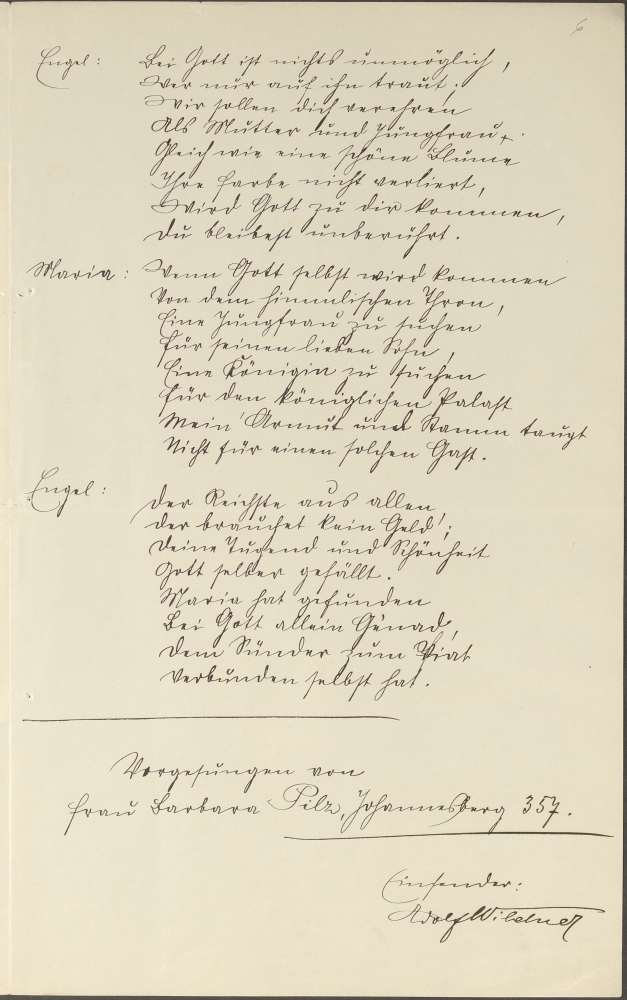 6
Engel: Bei Gott ist nichts unmöglich,
Wer nur auf ihn traut;
Wir sollen dich verehren
Als Mutter und Jungfrau.
Gleich wie eine schöne Blume
Ihre Farbe nicht verliert,
Wird Gott zu dir kommen,
Du bleibest unberührt.
Maria: Wenn Gott selbst wird kommen
Von dem himmlischen Thron,
Eine Jungfrau zu suchen
Für seinen lieben Sohn,
Eine Königin zu suchen
Für den königlichen Palast
Mein' Armut und Stamm taugt
Nicht für einen solchen Gast.
Engel: Der Reichste aus allen,
Der brauchet kein Geld;
Deine Tugend und Schönheit
Gott selber gefällt.
Maria hat gefunden
Bei Gott allein Genad,
Dem Sünder zum
Verbunden selbst hat.
Vorgesungen von
Frau Barbara Pilz, Johannesberg 357.
Einsender:
Adolf Wildner